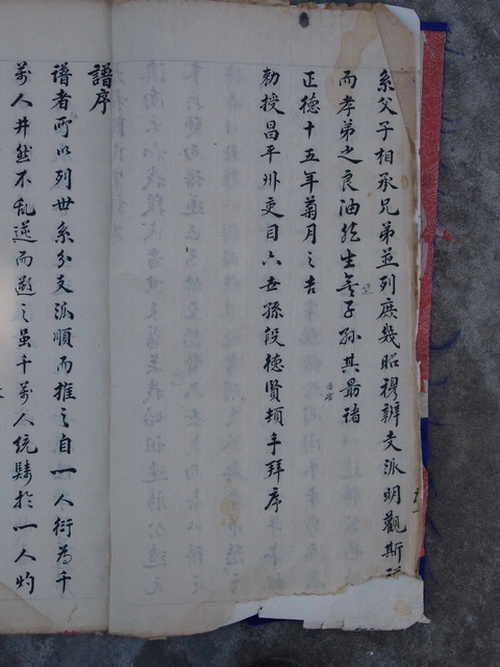 系父子相承兄弟並列庶幾昭穆辨支派明觀斯譜
而孝弟之良油然生矣子孫其勗諸
正德十五年菊月之吉
勅授昌平州吏目六世孫段德賢頓手拜序
譜序
譜者所以列世系分支派順而推之自一人衍為千
萬人井然不乱逆而遡之虽千萬人統歸於一人灼